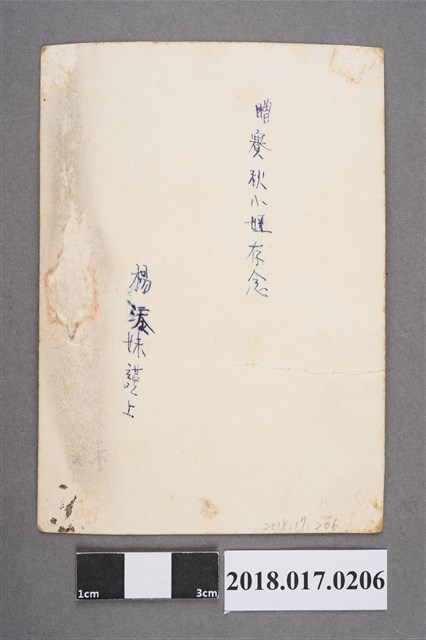 贈賽秋小姐存念
楊 妹謹上
2018.17.206
1cm 3cm
2018.017.0206